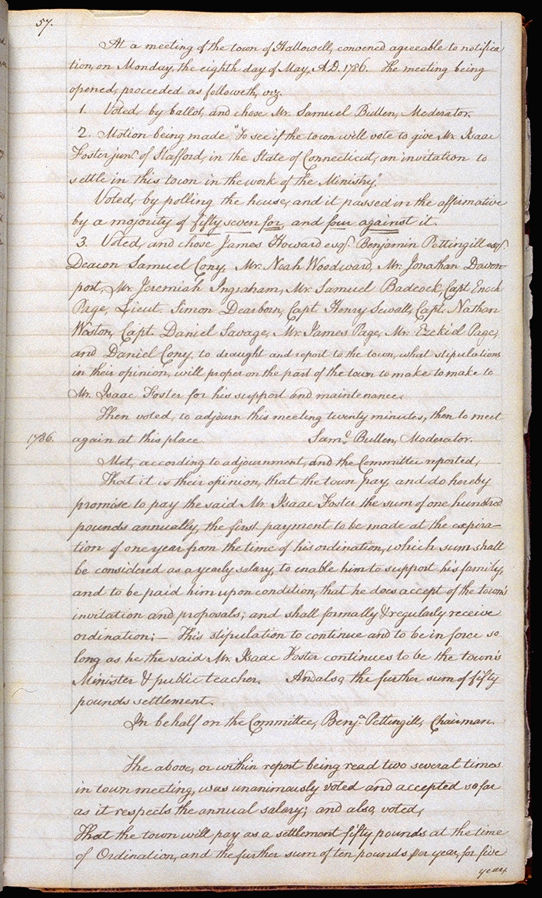 57.
At a meeting of the town of Hallowell, convened agreeable to notifica
tion, on Monday, the eighth day of May, A.D. 1786. The meeting being
opened, proceeded as followeth, viz.
1. Voted by ballot, and chose Mr. Samuel Bullen, Moderator.
2. Motion being made "To see if the town will vote to give Mr. Isaac
Foster junr. of Stafford, in the State of Connecticut, an invitation to
settle in this town in the work of the Ministry."
Voted, by polling the house, and it passed in the affirmative
by a majority of fifty seven for, and four against it.
3. Voted, and chose James Howard esqr. Benjamin Pettingill esqr.
Deacon Samuel Cony, Mr. Noah Woodward, Mr. Jonathan Daven-
port, Mr. Jeremiah Ingraham, Mr. Samuel Babcock, Capt. Enoch
Page, Lieut. Simon Dearborn, Capt. Henry Sewall, Capt. Nathan
Weston, Capt. Daniel Savage, Mr. James Page, Mr. Ezekiel Page,
and Daniel Cony, to draught and report to the town, what stipulations
in their opinion, will proper on the part of the town to make to make to
Mr. Isaac Foster for his support and maintenance.
Then voted, to adjourn this meeting twenty minutes, then to meet
1786. again at this place. Saml. Bullen, Moderator.
Met, according to adjournment, and the Committee reported,
That it is their opinion, that the town pay, and do hereby
promise to pay the said Mr. Isaac Foster the sum of one hundred
pounds annually, the first payment to be made at the expira-
tion of one year from the time of his ordination, which sum shall
be considered as a yearly salary, to enable him to support his family,
and to be paid him upon condition, that he does accept of the town's
invitation and proposals; and shall formally & regularly receive
ordination; — This stipulation to continue and to be in force so
long as he the said Mr. Isaac Foster continues to be the town's
Minister & public teacher. And also, the further sum of fifty
pounds settlement.
In behalf on the Committee, Benjn. Pettingill, Chairman.
The above, or within report being read two several times
in town meeting, was unanimously voted and accepted so far
as it respects the annual salary; and also, voted,
That the town will pay as a settlement fifty pounds at the time
of Ordination, and the further sum of ten pounds per year, for five
years